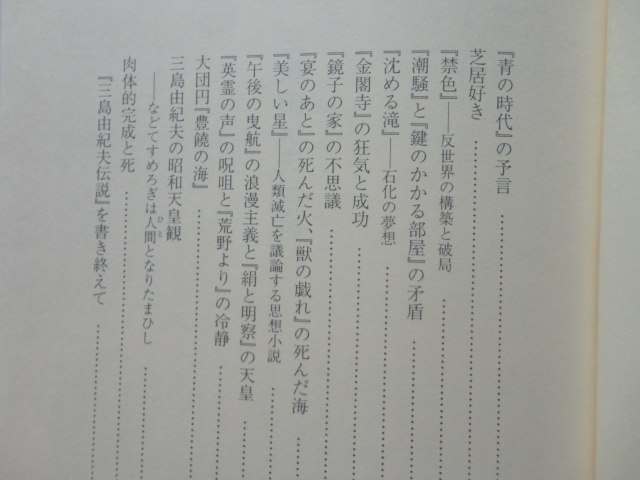 『青の時代』の予言
芝居好き
『禁色』——反世界の構築と破局
『潮騒』と『鍵のかかる部屋』の矛盾
『沈める滝』——石化の夢想
『金閣寺』の狂気と成功
『鏡子の家』の不思議
『宴のあと』の死んだ火、『獣の戯れ』の死んだ海
『美しい星』——人類滅亡を議論する思想小説
『午後の曳航』の浪漫主義と『絹と明察』の天皇
『英霊の声』の呪咀と『荒野より』の冷静
大団円『豊饒の海』
三島由紀夫の昭和天皇観
——などてすめろぎは人間となりたまひし
ひと
肉体的完成と死
『三島由紀夫伝説』を書き終えて